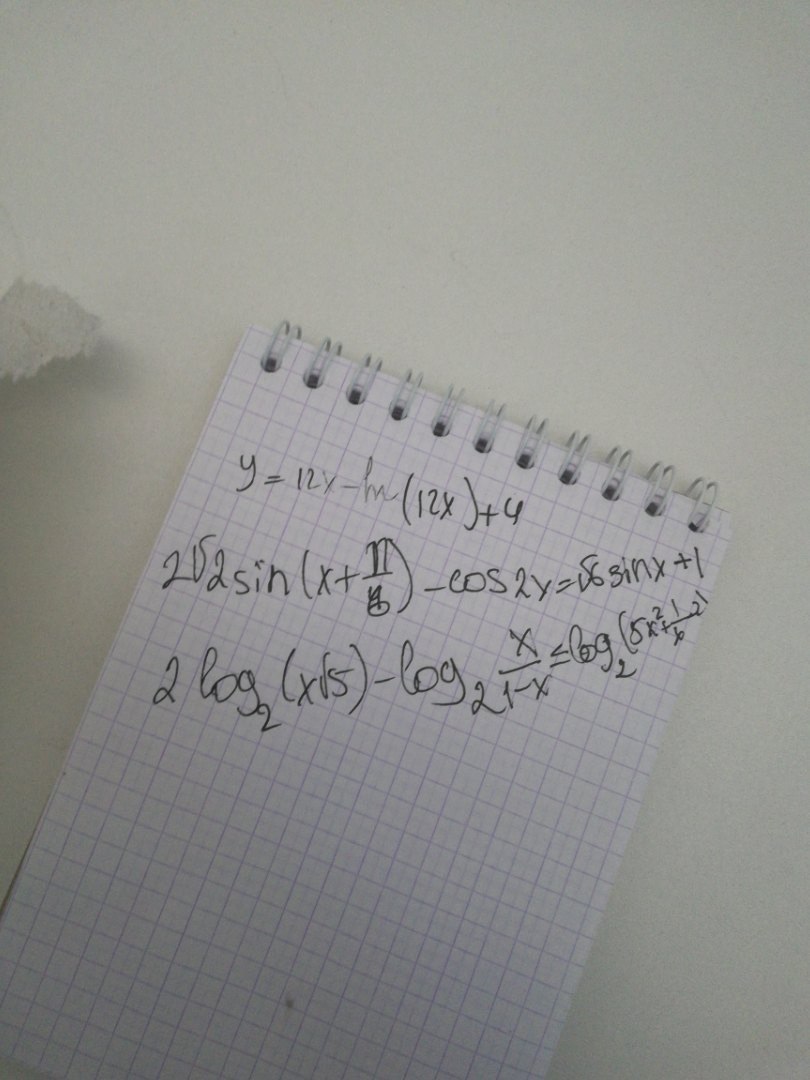 y = 12x - ln(12x) + 4
2√2 sin(x + π/6) - cos2x = √6 sinx + 1
2 log₂(x√5) - log₂ x/(1-x) ≤ log₂(5x² + 1/x - 2)